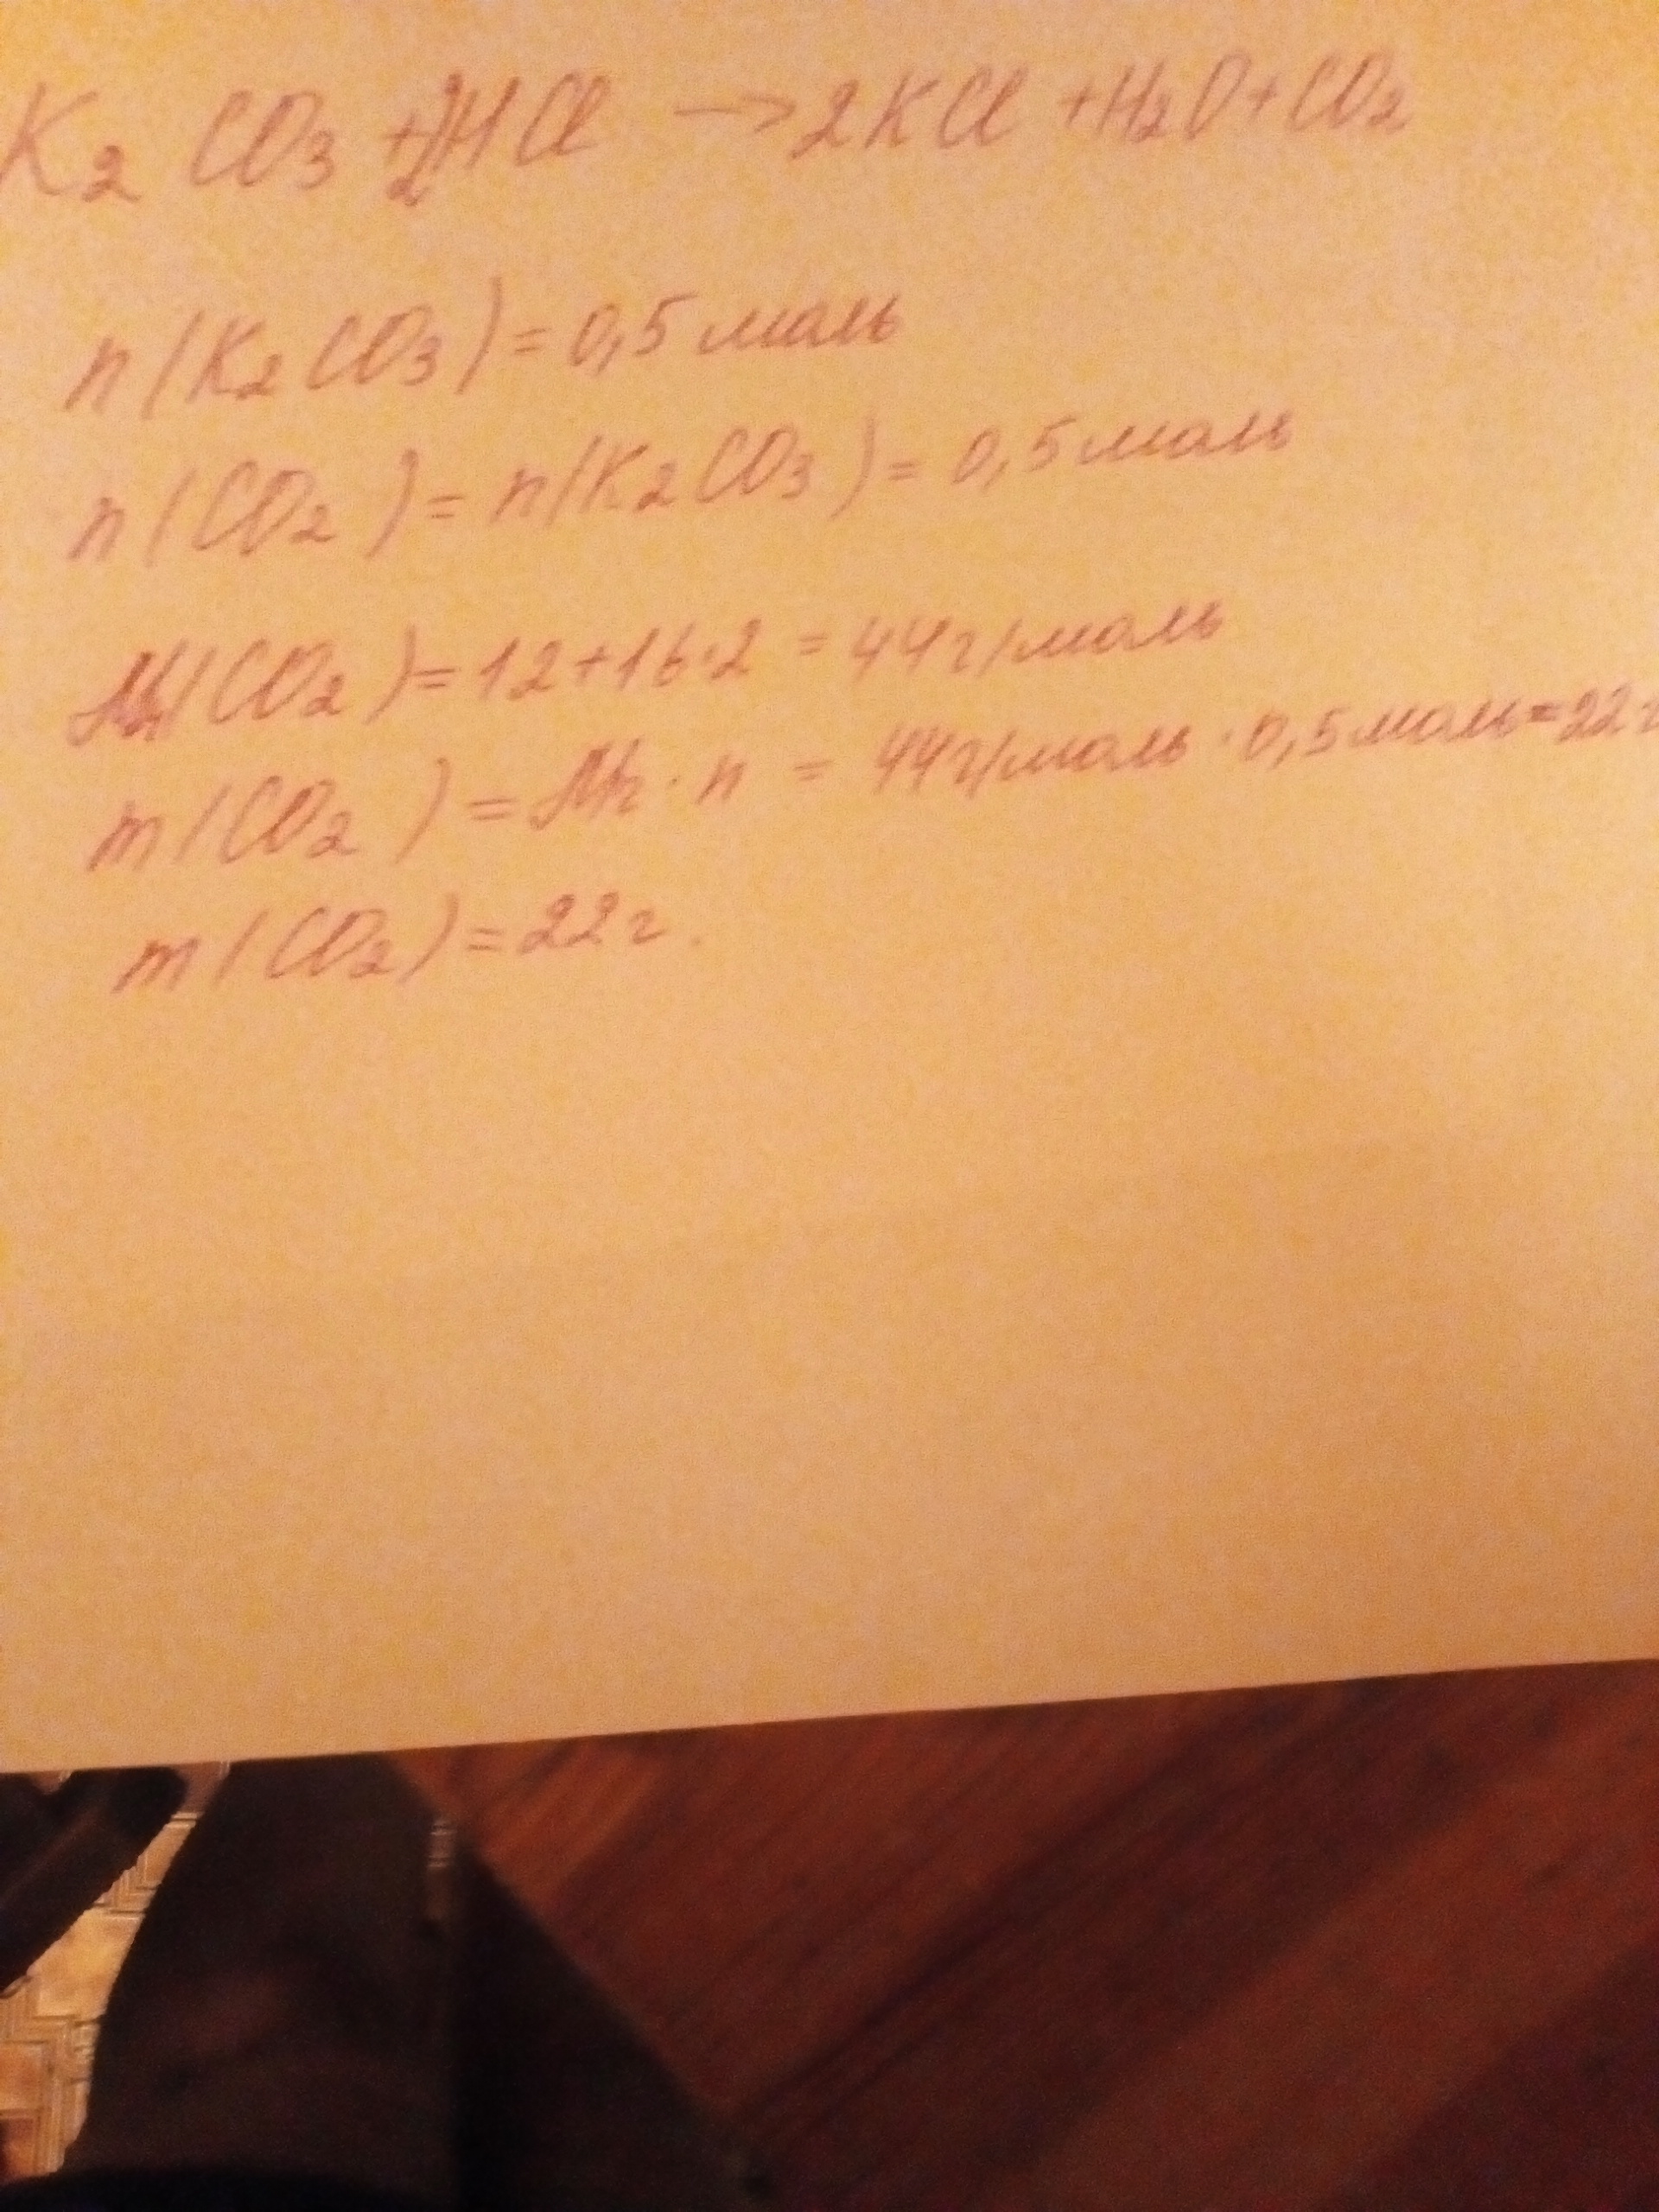 K₂CO₃ + 2HCl → 2KCl + H₂O + CO₂
n(K₂CO₃) = 0,5 моль
n(CO₂) = n(K₂CO₃) = 0,5 моль
Mr(CO₂) = 12+16·2 = 44 г/моль
m(CO₂) = Mr · n = 44 г/моль · 0,5 моль = 22 г
m(CO₂) = 22 г.